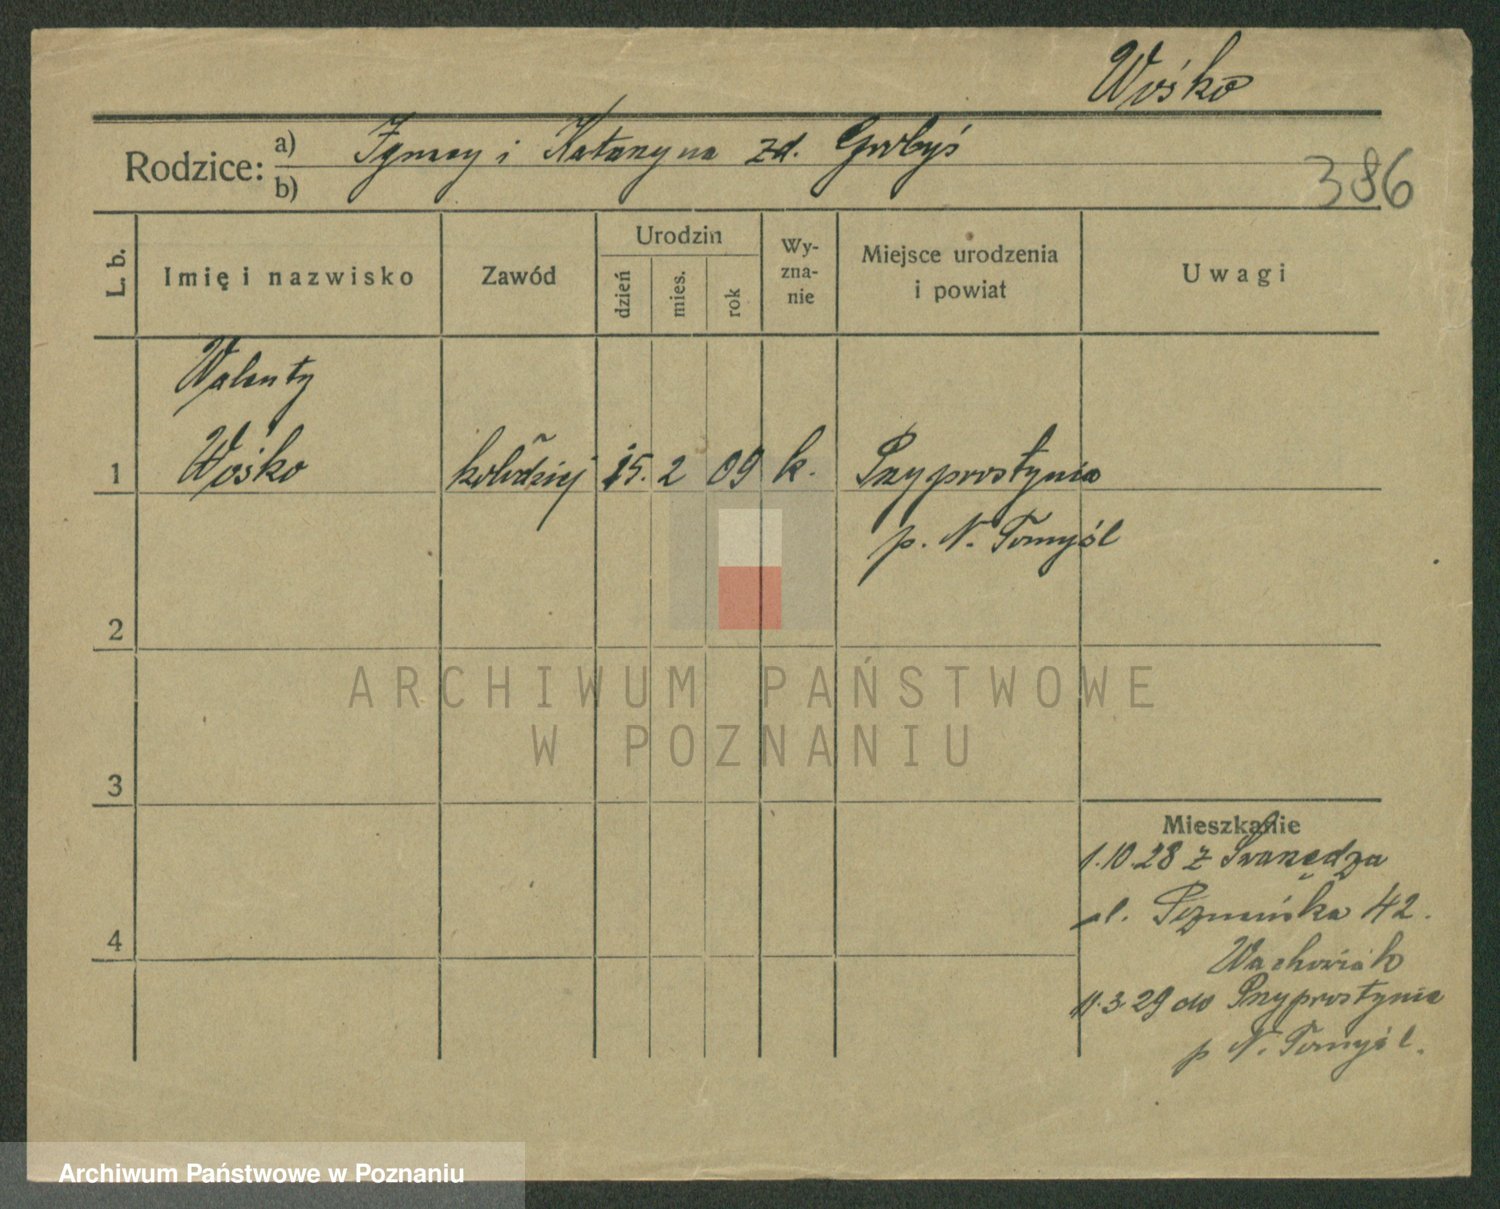 Wośko
Rodzice: a) Ignacy i Katarzyna zd. Grobyś
b)
386
L. b.
Imię i nazwisko
Zawód
Urodzin
dzień
mies.
rok
Wy-
zna-
nie
Miejsce urodzenia
i powiat
Uwagi
Walenty
1 Wośko kołodziej 15. 2 09 k. Przyprostynia
p. N. Tomyśl
2
ARCHIWUM PAŃSTWOWE
W POZNANIU
3
Mieszkanie
1.10.28 z Swarzędza
ul. Poznańska 42.
4
Wachowiak
11.3.29 do Przyprostynia
p N. Tomyśl.
Archiwum Państwowe w Poznaniu